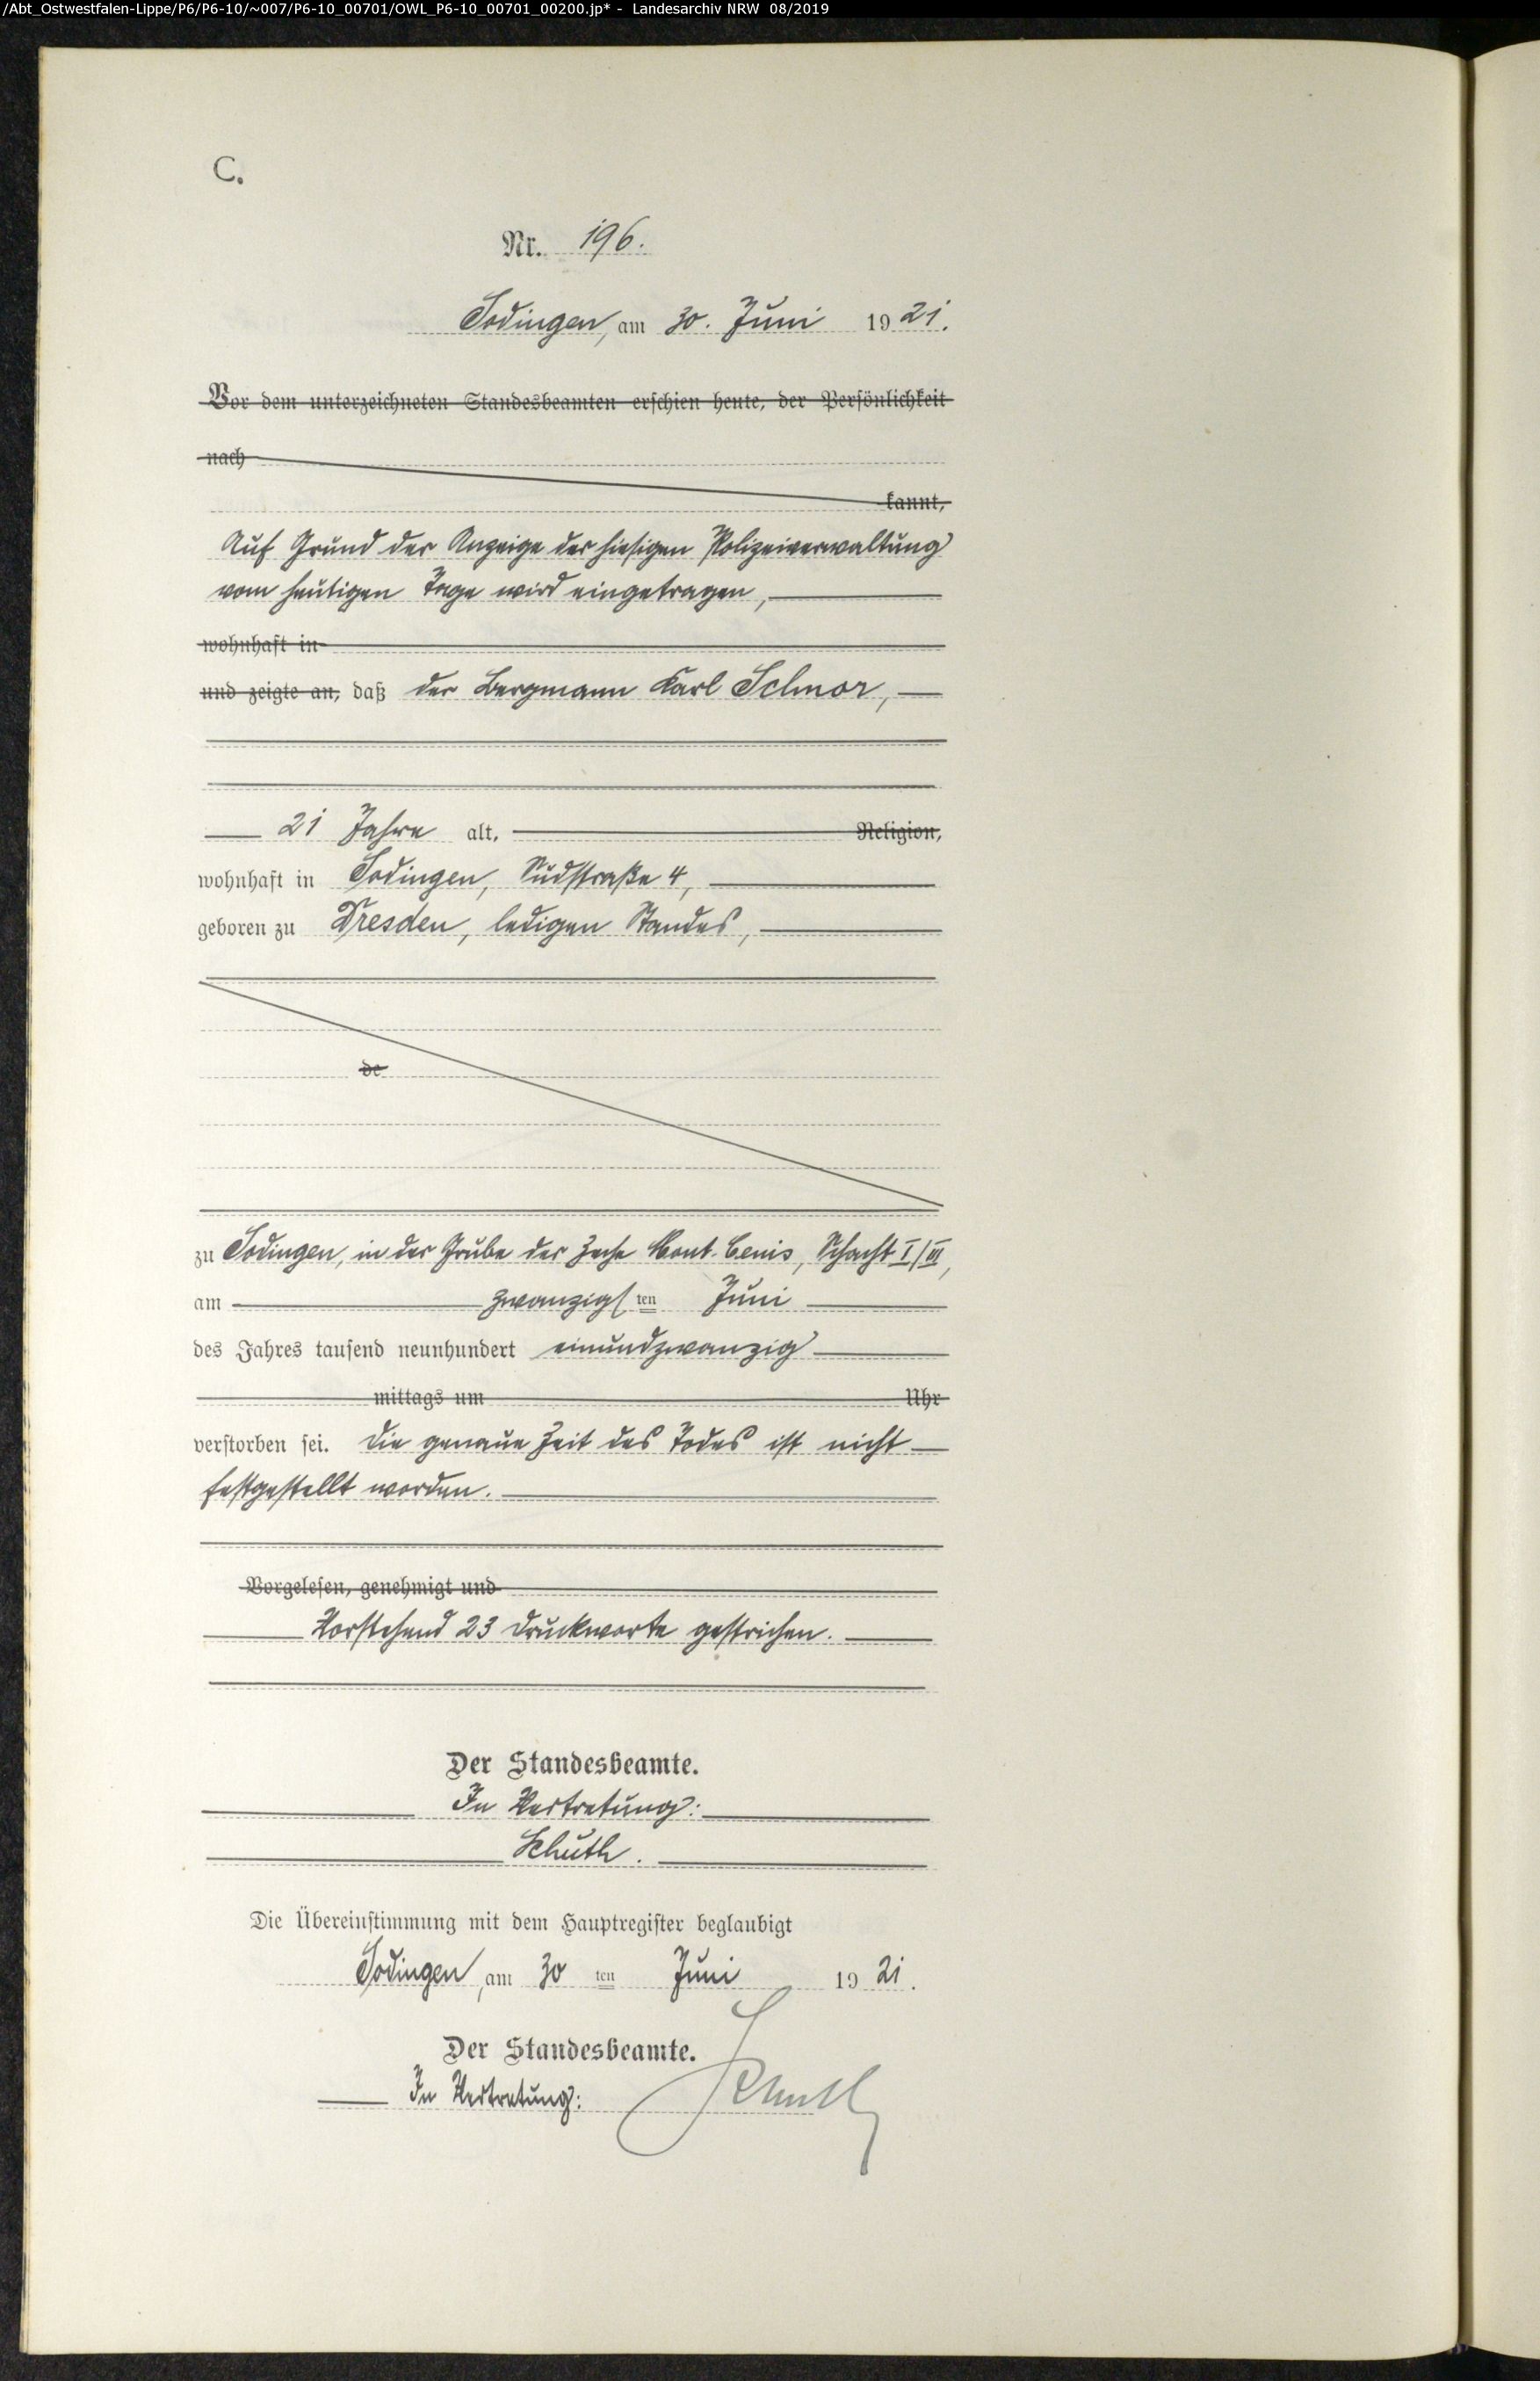 /Abt_Ostwestfalen-Lippe/P6/P6-10/~007/P6-10_00701/OWL_P6-10_00701_00200.jp* - Landesarchiv NRW 08/2019
C.
Nr. 196.
Sodingen, am 30. Juni 1921.
Vor dem unterzeichneten Standesbeamten erschien heute, der Persönlichkeit
nach
kannt,
Auf Grund der Anzeige der hiesigen Polizeiverwaltung
vom heutigen Tage wird eingetragen,
wohnhaft in
und zeigte an, daß der Bergmann Karl Schnor,
21 Jahre alt, Religion,
wohnhaft in Sodingen, Südstraße 4,
geboren zu Dresden, ledigen Standes,
de
zu Sodingen, in der Grube der Zeche Mont-Cenis, Schacht I/III,
am zwanzigsten Juni
des Jahres tausend neunhundert einundzwanzig
mittags um Uhr
verstorben sei. Die genaue Zeit des Todes ist nicht
festgestellt worden.
Vorgelesen, genehmigt und
Vorstehend 23 Druckworte gestrichen.
Der Standesbeamte.
In Vertretung:
Schuth.
Die Übereinstimmung mit dem Hauptregister beglaubigt
Sodingen, am 30ten Juni 1921.
Der Standesbeamte.
In Vertretung: Schuth